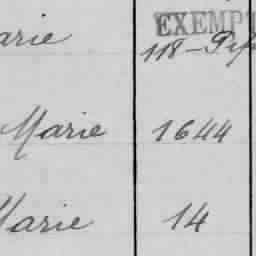 arie EXEMPT
118-
Marie 1644
Marie 14